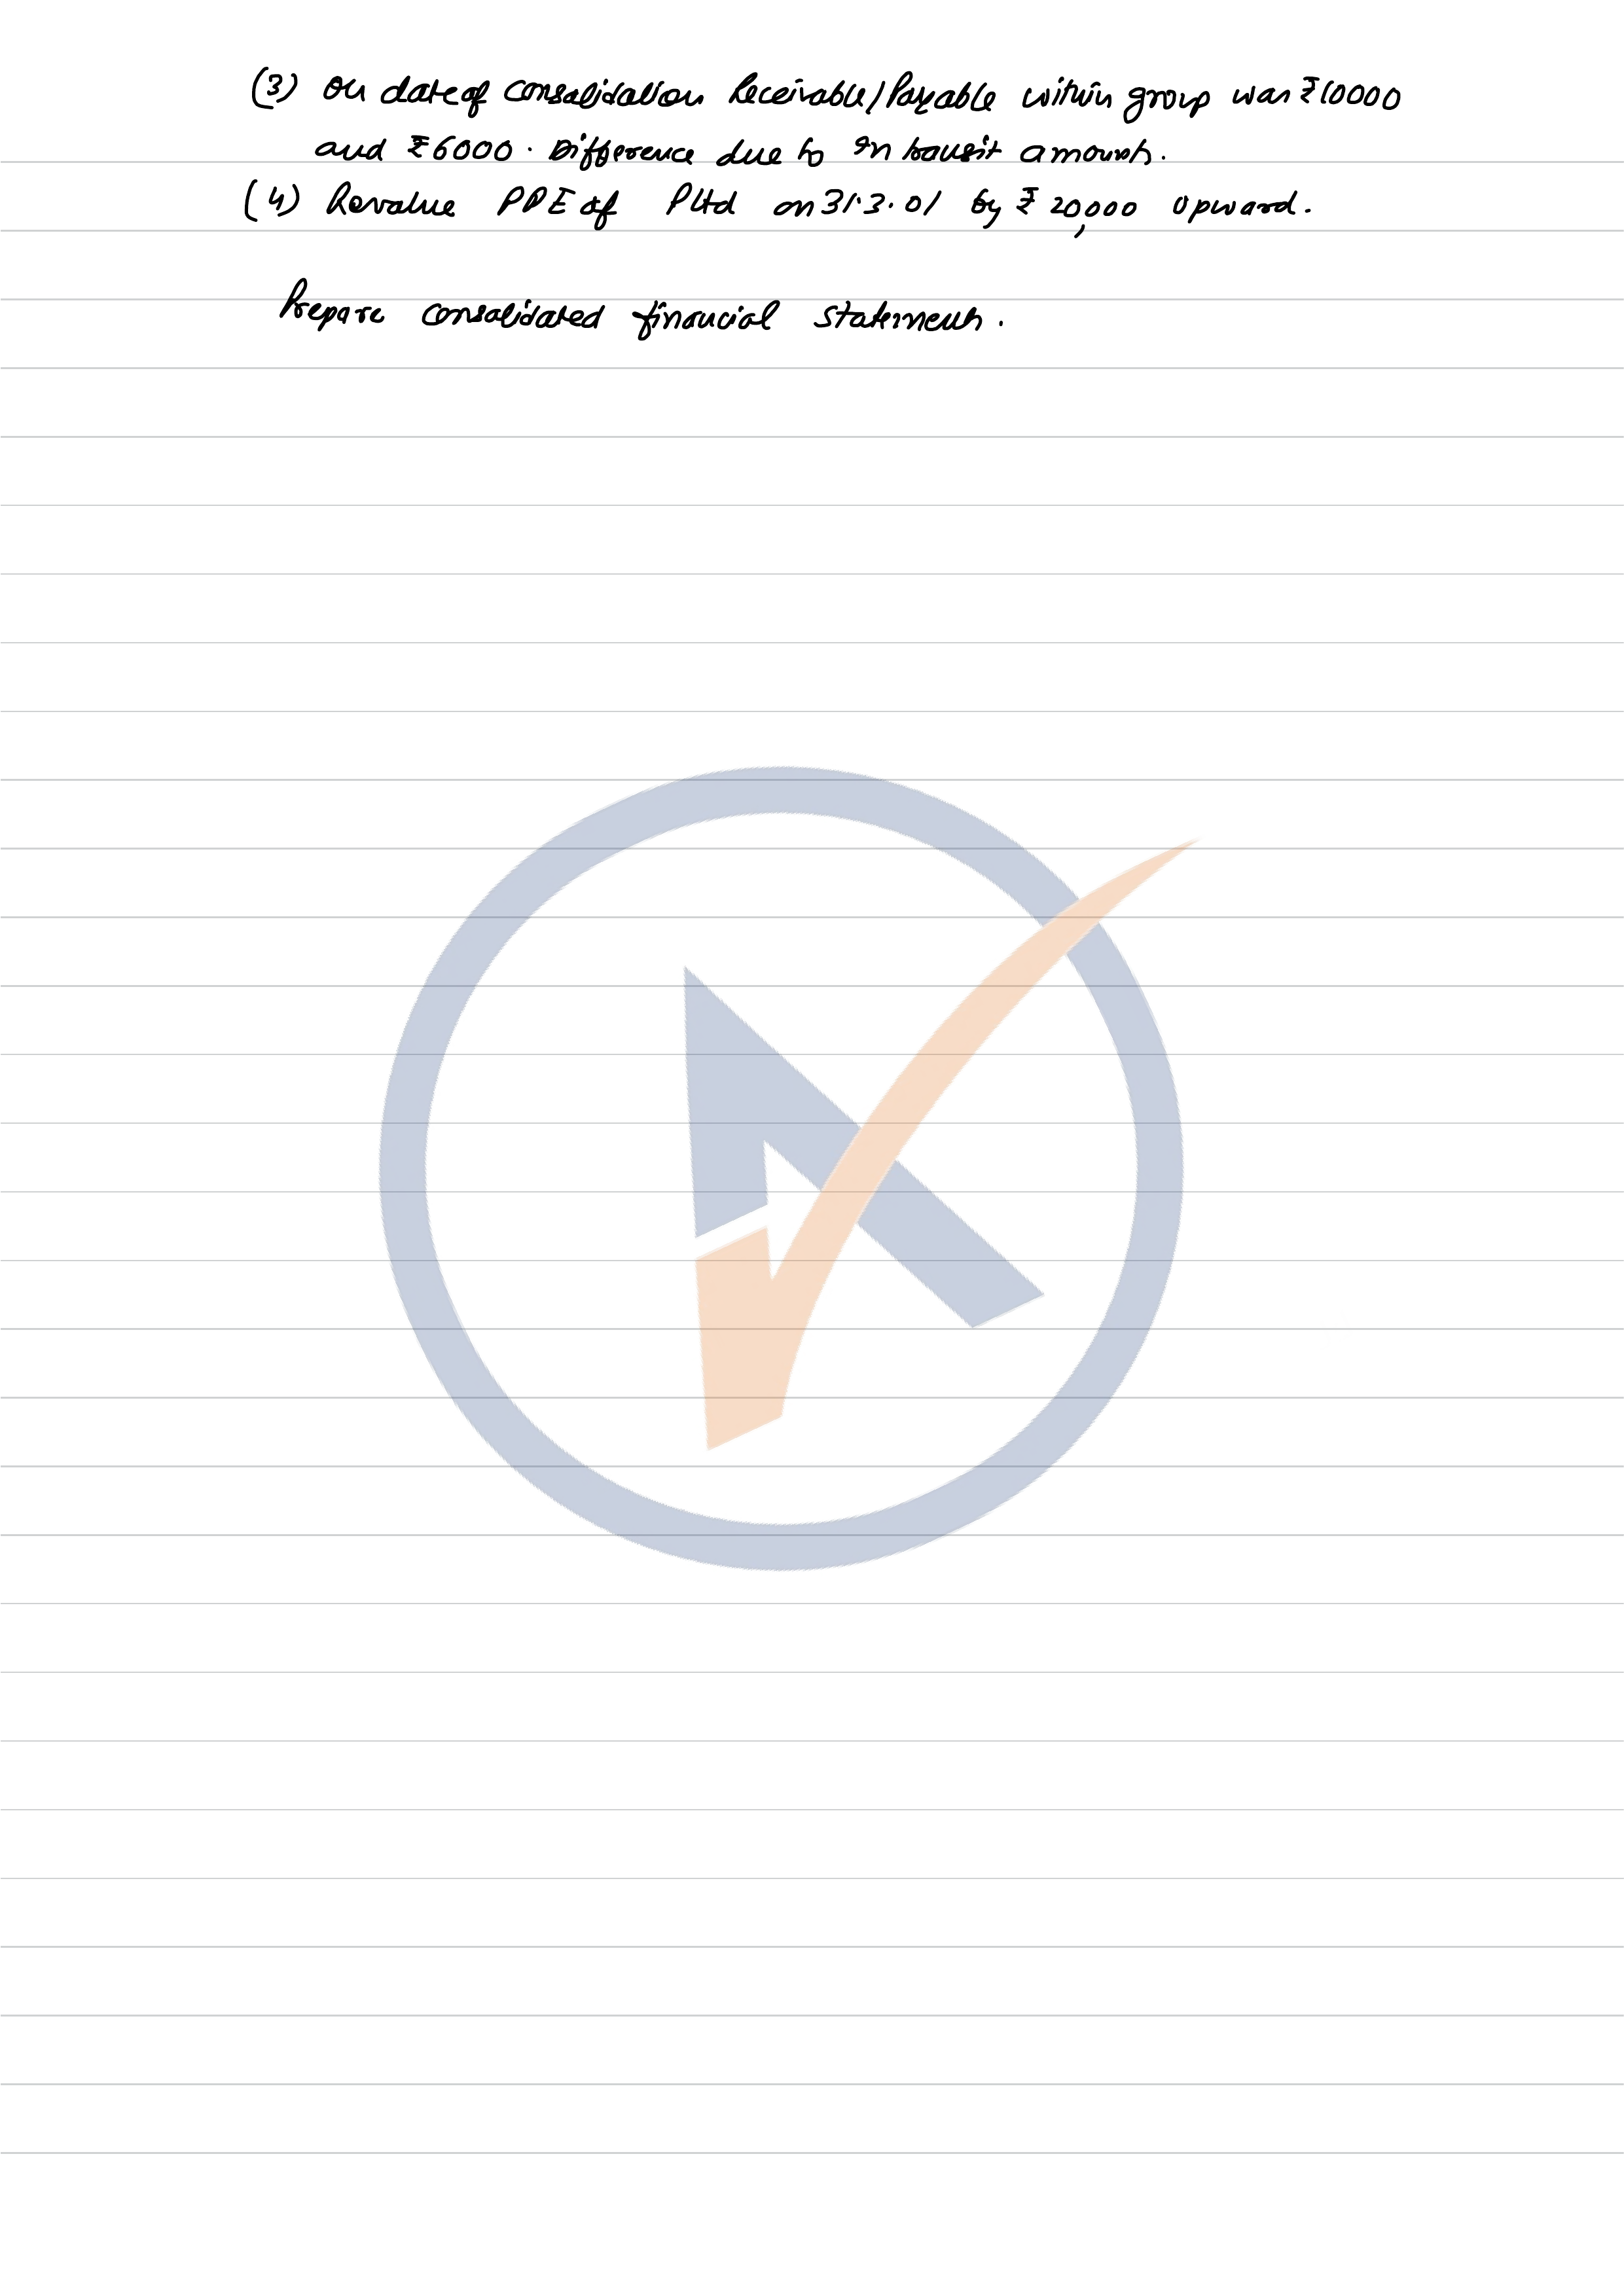 (3) On date of consolidation Receivable/Payable within group was ₹10000
and ₹6000. Difference due to In transit amount.
(4) Revalue PPE of P Ltd on 31.3.01 by ₹ 20,000 upward.
Prepare consolidated financial statements.